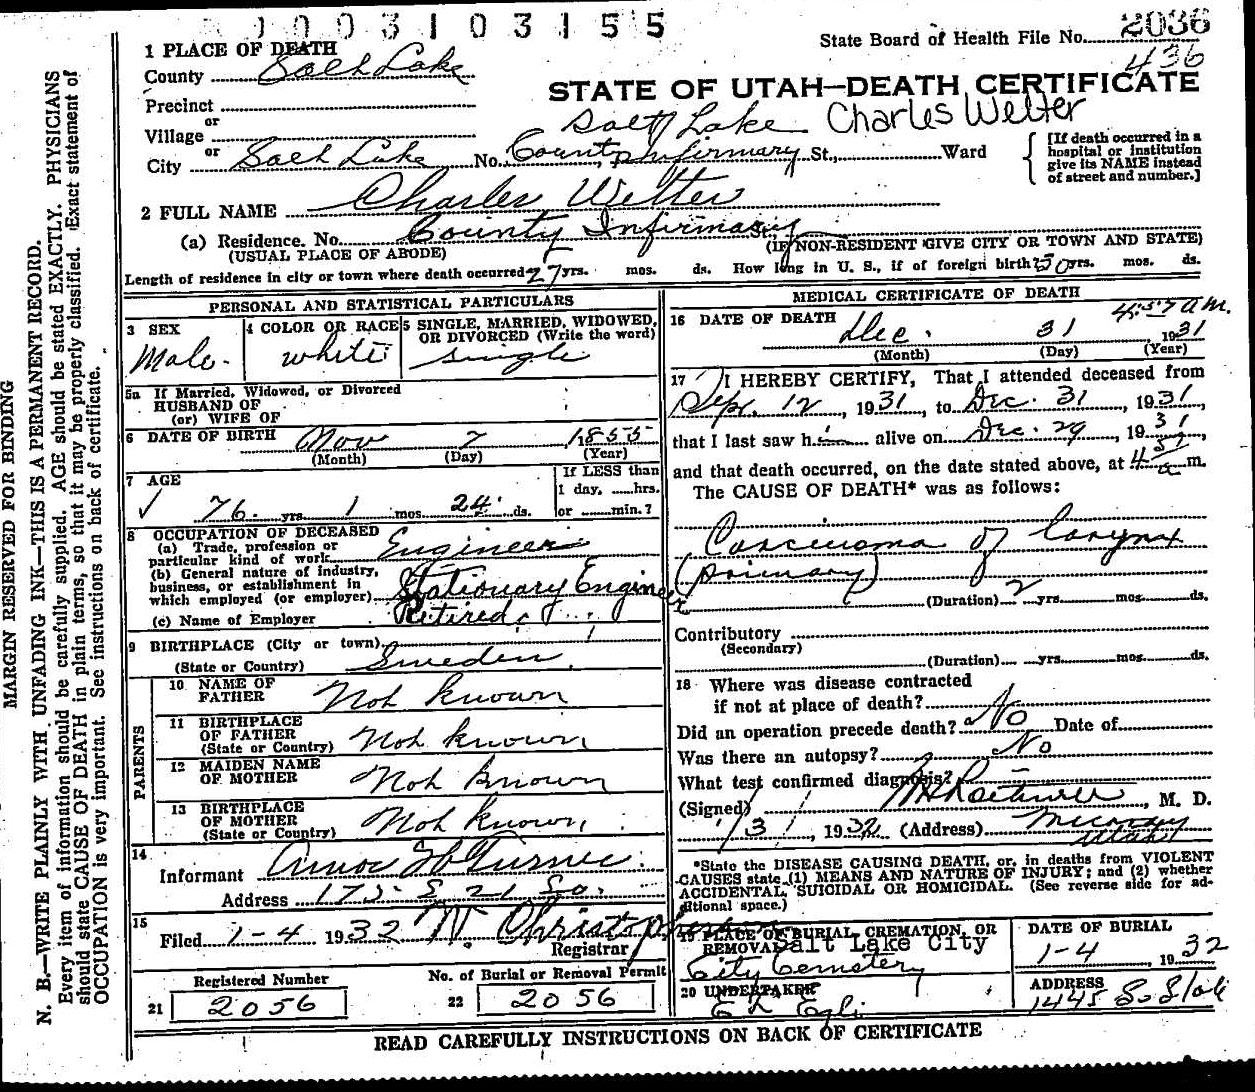 1003103155
State Board of Health File No. 2036
436
1 PLACE OF DEATH
County Salt Lake
STATE OF UTAH—DEATH CERTIFICATE
Precinct
or
Village
Salt Lake Charles Welter
or
City Salt Lake No. County Infirmary St., Ward
[If death occurred in a
hospital or institution
give its NAME instead
of street and number.]
2 FULL NAME Charles Welter
(a) Residence. No. County Infirmary
(USUAL PLACE OF ABODE) (IF NON-RESIDENT GIVE CITY OR TOWN AND STATE)
Length of residence in city or town where death occurred 27 yrs. mos. ds. How long in U. S., if of foreign birth? 30 yrs. mos. ds.
PERSONAL AND STATISTICAL PARTICULARS
3 SEX
Male
4 COLOR OR RACE
white
5 SINGLE, MARRIED, WIDOWED,
OR DIVORCED (Write the word)
single
5a If Married, Widowed, or Divorced
HUSBAND OF
(or) WIFE OF
6 DATE OF BIRTH Nov 7 1855
(Month) (Day) (Year)
7 AGE
76 yrs. 1 mos. 24 ds.
If LESS than
1 day, hrs.
or min.?
8 OCCUPATION OF DECEASED
(a) Trade, profession or
particular kind of work Engineer
(b) General nature of industry,
business, or establishment in
which employed (or employer) Stationary Engineer
(c) Name of Employer Retired
9 BIRTHPLACE (City or town)
(State or Country) Sweden
PARENTS
10 NAME OF
FATHER Not known
11 BIRTHPLACE
OF FATHER
(State or Country) Not known
12 MAIDEN NAME
OF MOTHER Not known
13 BIRTHPLACE
OF MOTHER
(State or Country) Not known
14
Informant Amos Turner
Address 175 E 21 So.
15
Filed 1-4 1932
Registrar
Registered Number
21 2056
No. of Burial or Removal Permit
22 2056
MEDICAL CERTIFICATE OF DEATH
16 DATE OF DEATH 4:57 a m.
Dec. 31 1931
(Month) (Day) (Year)
17 I HEREBY CERTIFY, That I attended deceased from
Sept. 12, 1931, to Dec. 31, 1931,
that I last saw him alive on Dec. 29, 1931,
and that death occurred, on the date stated above, at 4 57 a m.
The CAUSE OF DEATH* was as follows:
Carcinoma of larynx
(primary)
(Duration) 2 yrs. mos. ds.
Contributory
(Secondary)
(Duration) yrs. mos. ds.
18 Where was disease contracted
if not at place of death?
Did an operation precede death? No Date of
Was there an autopsy? No
What test confirmed diagnosis?
(Signed) , M. D.
1/31, 1932 (Address) Murray
Utah
*State the DISEASE CAUSING DEATH, or, in deaths from VIOLENT
CAUSES state (1) MEANS AND NATURE OF INJURY; and (2) whether
ACCIDENTAL, SUICIDAL OR HOMICIDAL. (See reverse side for ad-
ditional space.)
19 PLACE OF BURIAL, CREMATION, OR
REMOVAL Salt Lake City
City Cemetery
DATE OF BURIAL
1-4, 1932
20 UNDERTAKER
E L Egli
ADDRESS
1445 So State
READ CAREFULLY INSTRUCTIONS ON BACK OF CERTIFICATE
MARGIN RESERVED FOR BINDING
N. B.—WRITE PLAINLY WITH UNFADING INK—THIS IS A PERMANENT RECORD.
Every item of information should be carefully supplied. AGE should be stated EXACTLY. PHYSICIANS
should state CAUSE OF DEATH in plain terms, so that it may be properly classified. Exact statement of
OCCUPATION is very important. See instructions on back of certificate.